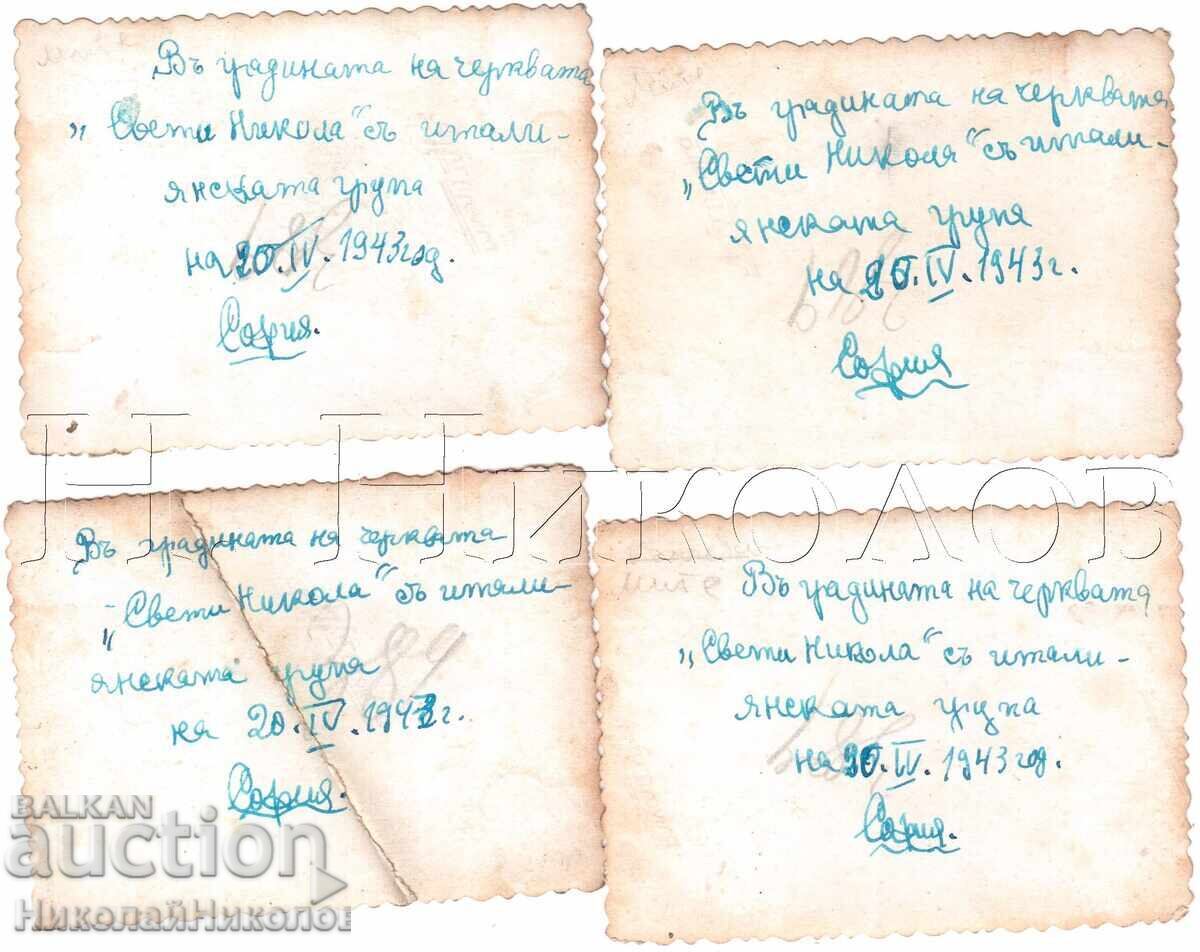 Въ градината на черквата
„Свети Никола“ съ итали-
янската група
на 20.IV.1943 год.
София.
Въ градината на черквата
„Свети Никола“ съ итали-
янската група
на 20.IV.1943 г.
София
Въ градината на черквата
„Свети Никола“ съ итали-
янската група
на 20.IV.1943 г.
София.
Въ градината на черквата
„Свети Никола“ съ итали-
янската група
на 20.IV.1943 год.
София.
Н Николов
BALKAN
auction
НиколайНиколов